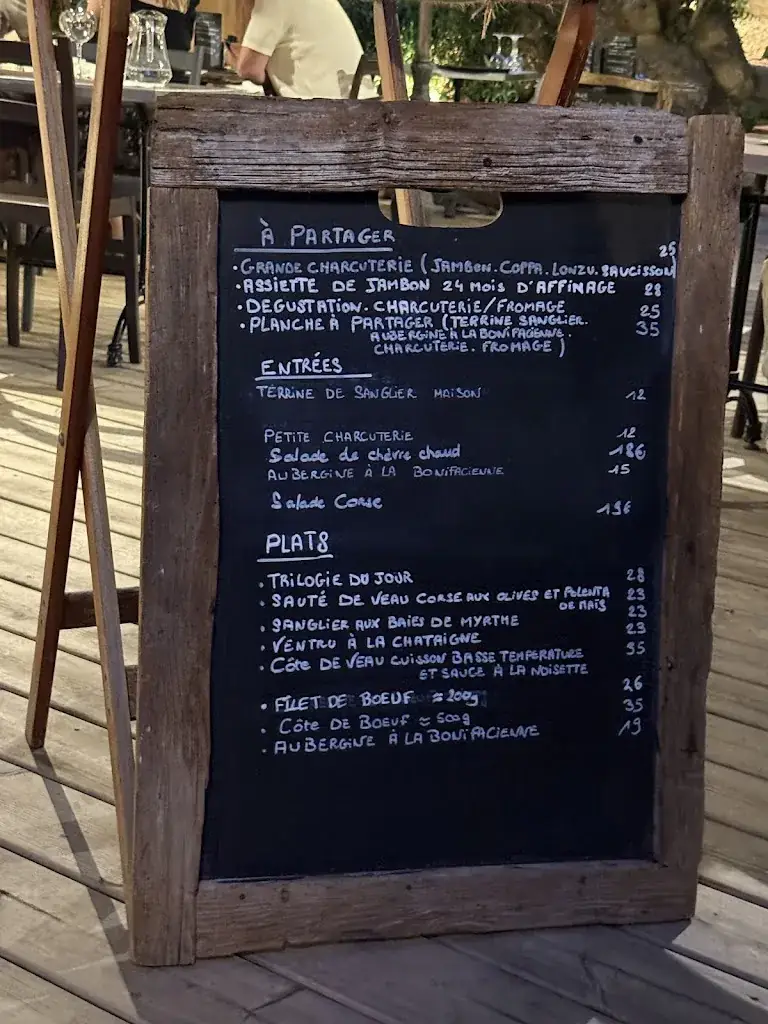 À PARTAGER
• GRANDE CHARCUTERIE (JAMBON. COPPA. LONZU. SAUCISSON) 25
• ASSIETTE DE JAMBON 24 MOIS D'AFFINAGE 28
• DEGUSTATION. CHARCUTERIE/FROMAGE 25
• PLANCHE À PARTAGER (TERRINE SANGLIER. 35
AUBERGINE À LA BONIFACIENNE.
CHARCUTERIE. FROMAGE)
ENTRÉES
TERRINE DE SANGLIER MAISON 12
PETITE CHARCUTERIE 12
Salade de chèvre chaud 18€
AUBERGINE À LA BONIFACIENNE 15
Salade Corse 19€
PLATS
• TRILOGIE DU JOUR 28
• SAUTÉ DE VEAU CORSE AUX OLIVES ET POLENTA 23
DE MAÏS
• SANGLIER AUX BAIES DE MYRTHE 23
• VENTRU À LA CHATAIGNE 23
• CÔTE DE VEAU CUISSON BASSE TEMPERATURE 35
ET SAUCE À LA NOISETTE
• FILET DE BOEUF ≈ 200g 26
• CÔTE DE BOEUF ≈ 500g 35
• AUBERGINE À LA BONIFACIENNE 19